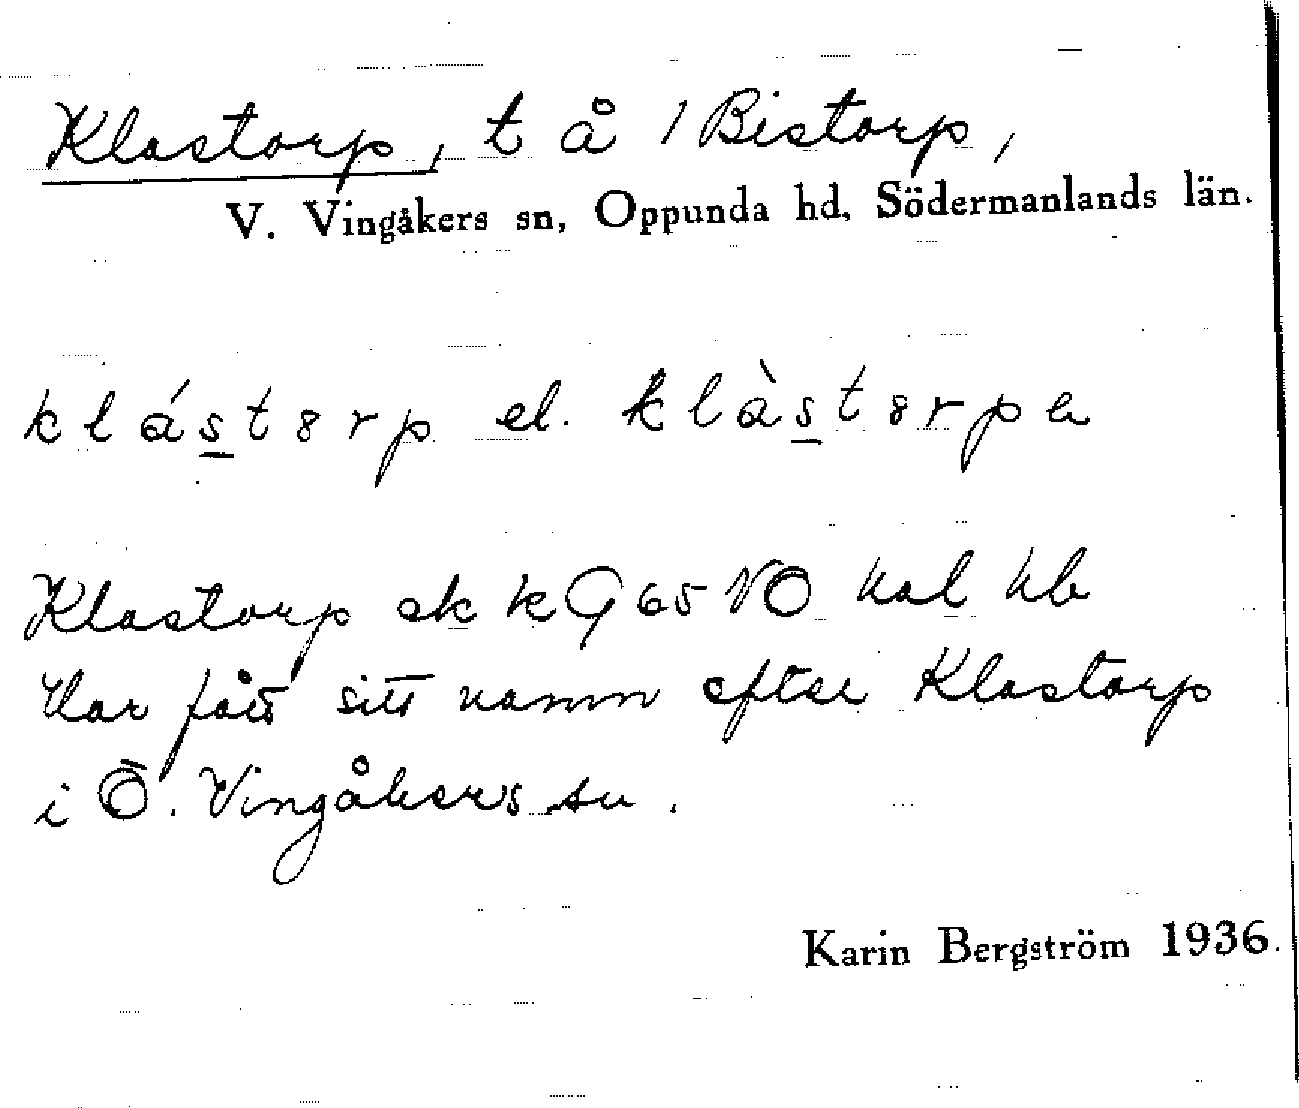 Klastorp, t å 1 Bistorp,
V. Vingåkers sn, Oppunda hd, Södermanlands län.
klástȣrp el. klàstȣrpa
Klastorp ek k G 65 VO hal hb
Har fått sitt namn efter Klastorp
i Ö. Vingåkers sn.
Karin Bergström 1936.